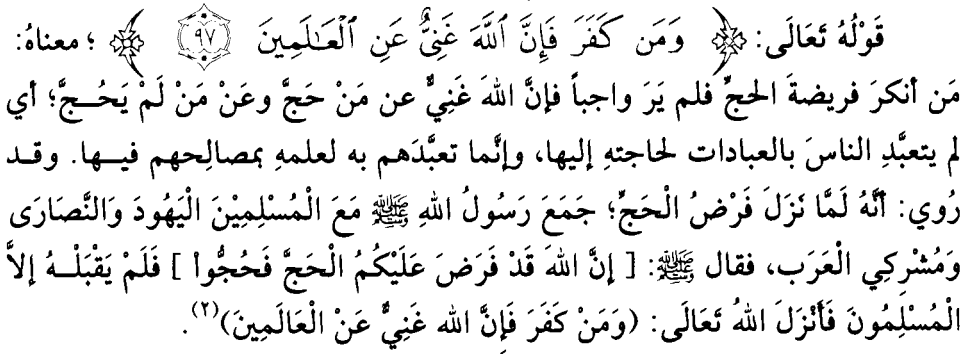 قَوْلُهُ تَعَالَى: ﴿ وَمَن كَفَرَ فَإِنَّ ٱللَّهَ غَنِيٌّ عَنِ ٱلْعَٰلَمِينَ ۝٩٧ ﴾ ؛ معناهُ:
مَن أنكرَ فريضةَ الحجِّ فلم يَرَ واجباً فإنَّ اللهَ غَنِيٌّ عن مَنْ حَجَّ وعَنْ مَنْ لَمْ يَحُـجَّ؛ أي
لم يتعبَّدِ الناسَ بالعبادات لحاجتهِ إليها، وإنَّما تعبَّدَهم به لعلمهِ بمصالِحهم فيـها. وقـد
رُوي: أنَّهُ لَمَّا نَزَلَ فَرْضُ الْحَجِّ؛ جَمَعَ رَسُولُ اللهِ ﷺ مَعَ الْمُسْلِمِيْنَ الْيَهُودَ وَالنَّصَارَى
وَمُشْرِكِي الْعَرَب، فقال ﷺ: [ إنَّ اللهَ قَدْ فَرَضَ عَلَيْكُمُ الْحَجَّ فَحُجُّواْ ] فَلَمْ يَقْبَلْـهُ إلاَّ
الْمُسْلِمُونَ فَأَنْزَلَ اللهُ تَعَالَى: (وَمَنْ كَفَرَ فَإنَّ الله غَنِيٌّ عَنْ الْعَالَمِينَ)(٢).